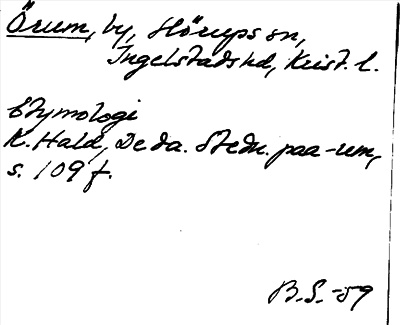 Örum, by, Hörups sn,
Ingelstads hd, Krist. l.
Etymologi
K. Hald, De da. Stedn. paa -um,
s. 109 f.
B.S. -59